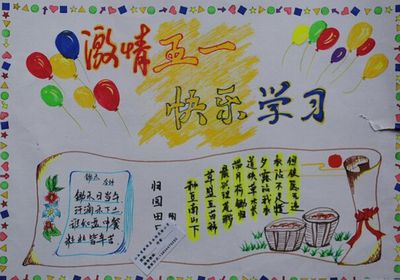 激情五一
快乐学习
锄禾
锄禾日当午
汗滴禾下土
谁知盘中餐
粒粒皆辛苦
归园田居
种豆南山下
草盛豆苗稀
晨兴理荒秽
带月荷锄归
道狭草木长
夕露沾我衣
衣沾不足惜
但使愿无违